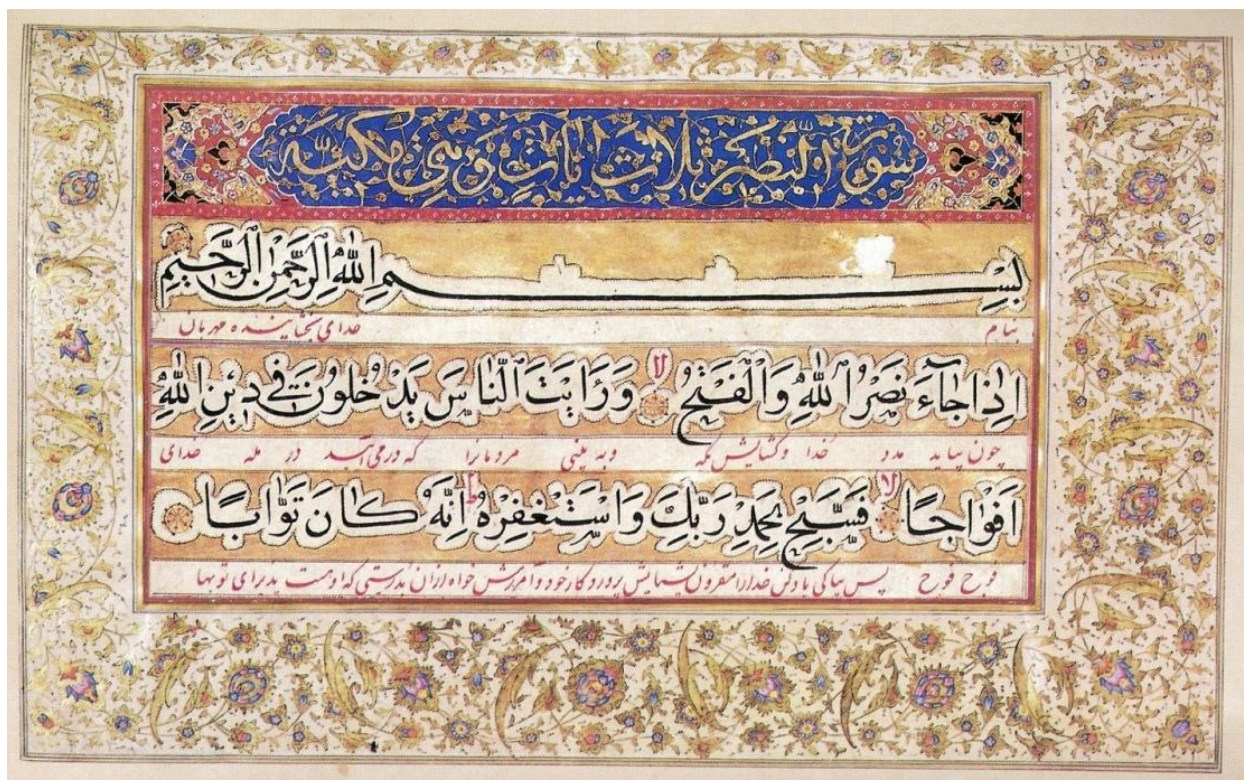 سورة النصر ثلاث ایات و هی مکیة
بِسْمِ اللهِ الرَّحْمٰنِ الرَّحِیْمِ
بنام خدای بخشاینده مهربان
اِذَا جَآءَ نَصْرُ اللهِ وَالْفَتْحُ لا وَرَاَیْتَ النَّاسَ یَدْخُلُوْنَ فِیْ دِیْنِ اللهِ
چون بیاید مدد خدا و گشایش مکه و به بینی مردمانرا که درمی آیند در مله خدای
اَفْوَاجًا لا فَسَبِّحْ بِحَمْدِ رَبِّكَ وَاسْتَغْفِرْهُ ط اِنَّهٗ كَانَ تَوَّابًا
فوج فوج پس بپاکی یاد کن خدارا مقرون بستایش پروردگار خود و آمرزش خواه ازان بدرستی که او هست پذیرای توبها